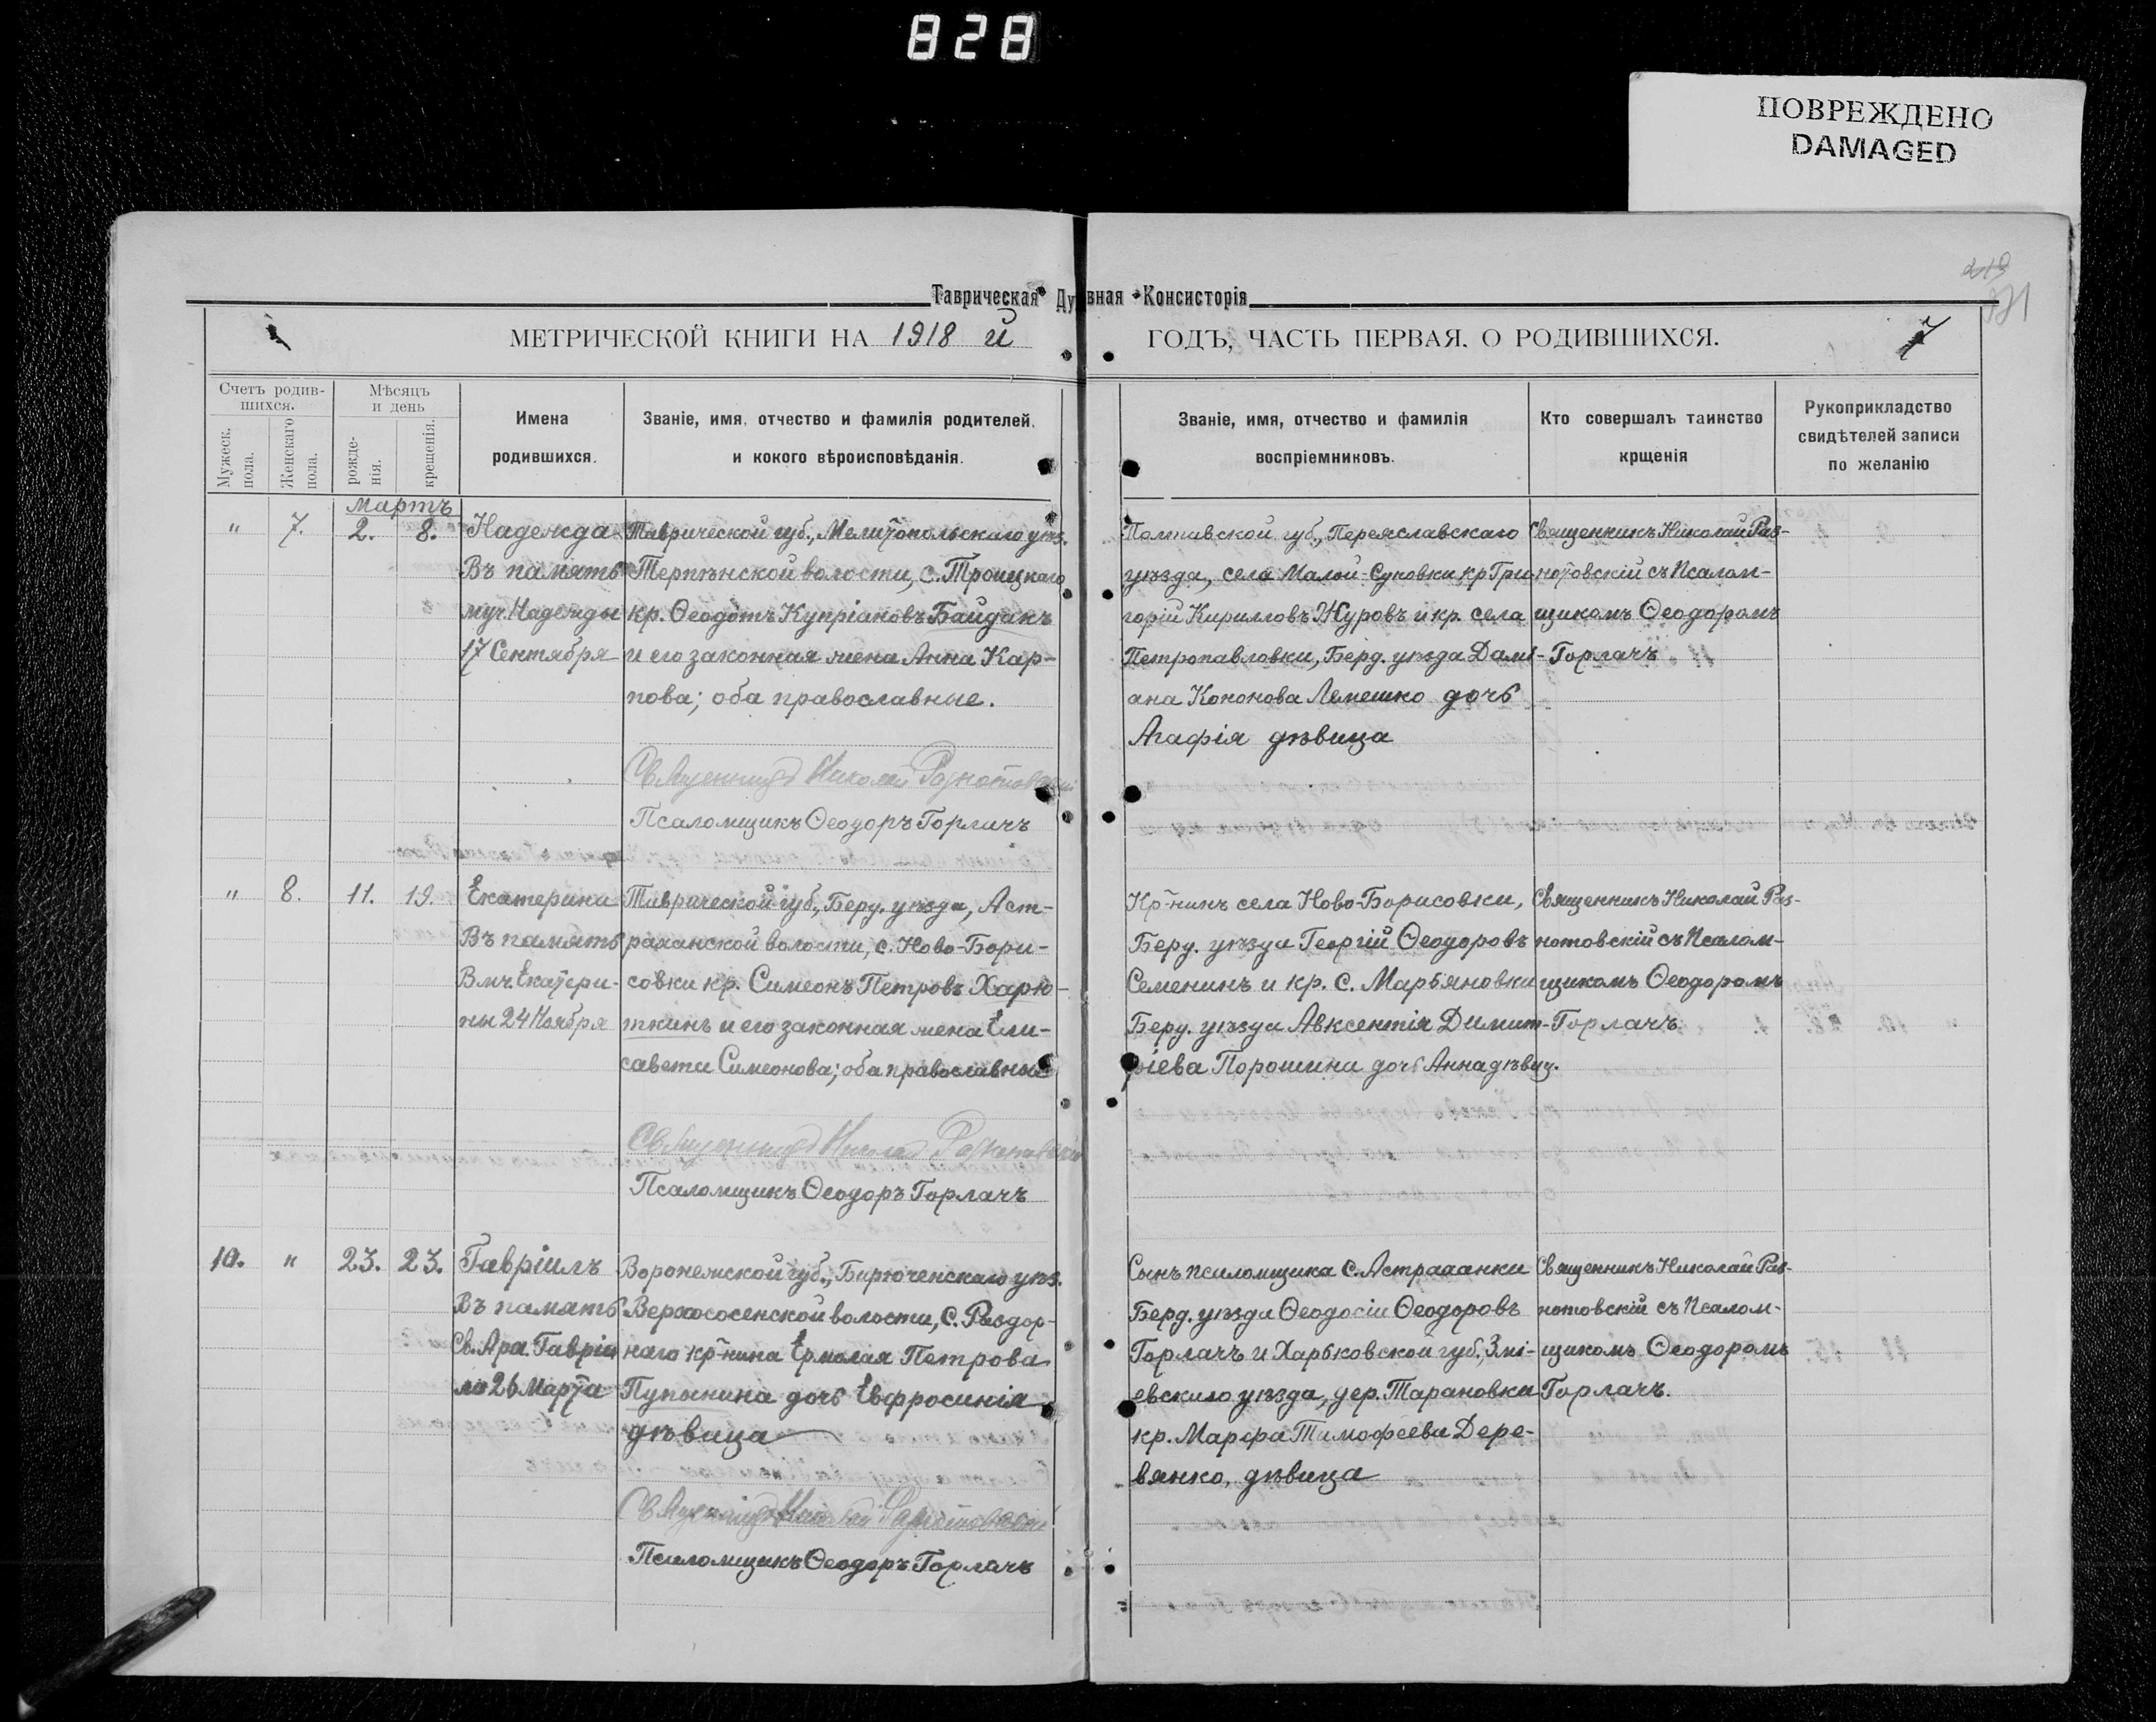 828
ПОВРЕЖДЕНО
DAMAGED
Таврическая Духовная Консисторія
МЕТРИЧЕСКОЙ КНИГИ НА 1918 й ГОДЪ, ЧАСТЬ ПЕРВАЯ, О РОДИВШИХСЯ. 7
Счетъ родив-
шихся.
Мужеск.
пола.
Женскаго
пола.
Мѣсяцъ
и день
рожде-
нія.
крещенія.
Имена
родившихся.
Званіе, имя, отчество и фамилія родителей,
и кокого вѣроисповѣданія.
Званіе, имя, отчество и фамилія
воспріемниковъ.
Кто совершалъ таинство
крщенія
Рукоприкладство
свидѣтелей записи
по желанію
Мартъ
" 7. 2. 8.
Надежда
Въ память
муч. Надежды
17 Сентября
Таврической губ., Мелитопольскаго уѣз.
Терпѣнской волости, с. Троицкаго
кр. Ѳеодотъ Купріановъ Байданъ
и его законная жена Анна Кар-
пова; оба православные.
Священникъ Николай Разнотовскій
Псаломщикъ Ѳеодоръ Горлачъ
Полтавской губ., Переяславскаго
уѣзда, села Малой-Суковки кр Гри
горій Кирилловъ Журовъ и кр. села
Петропавловки, Берд. уѣзда Дамі-
ана Кононова Лемешко дочь
Агафія дѣвица
Священникъ Николай Раз-
нотовскій съ Псалом-
щикомъ Ѳеодоромъ
Горлачъ
" 8. 11. 19.
Екатерина
Въ память
Вмч. Екатери-
ны 24 Ноября
Таврической губ., Берд. уѣзда, Аст-
раханской волости, с. Ново-Бори-
совки кр. Симеонъ Петровъ Харю-
ткинъ и его законная жена Ели-
савета Симеонова; оба православные
Священникъ Николай Разнотовскій
Псаломщикъ Ѳеодоръ Горлачъ
Кр-нинъ села Ново-Борисовки,
Берд. уѣзда Георгій Ѳеодоровъ
Семенинъ и кр. с. Марьяновки
Берд. уѣзда Авксентія Димит-
ріева Порошина дочь Анна дѣвиц.
Священникъ Николай Раз-
нотовскій съ Псалом-
щикомъ Ѳеодоромъ
Горлачъ
10. " 23. 23.
Гавріилъ
Въ память
Св. Арх. Гавріи
ла 26 Марта
Воронежской губ., Бирюченскаго уѣз.
Верхососенской волости, с. Раздор-
наго кр-нина Ермолая Петрова
Пупынина дочь Евфросинія
дѣвица
Священникъ Николай Разнотовскій
Псаломщикъ Ѳеодоръ Горлачъ
Сынъ псаломщика с. Астраханки
Берд. уѣзда Ѳеодосій Ѳеодоровъ
Горлачъ и Харьковской губ., Змі-
евскаго уѣзда, дер. Тарановки
кр. Марфа Тимофеева Дере-
вянко, дѣвица
Священникъ Николай Раз-
нотовскій съ Псалом-
щикомъ Ѳеодоромъ
Горлачъ.